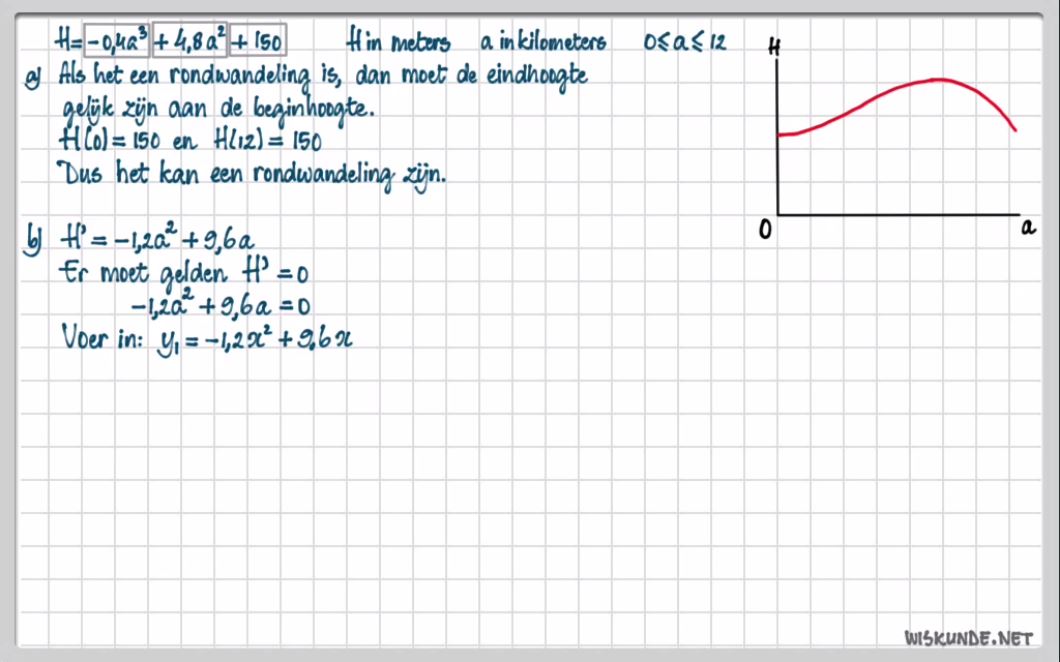 H = -0,4a³ + 4,8a² + 150 H in meters a in kilometers 0 ≤ a ≤ 12
a) Als het een rondwandeling is, dan moet de eindhoogte
gelijk zijn aan de beginhoogte.
H(0) = 150 en H(12) = 150
Dus het kan een rondwandeling zijn.
b) H' = -1,2a² + 9,6a
Er moet gelden H' = 0
-1,2a² + 9,6a = 0
Voer in: y₁ = -1,2x² + 9,6x
H
0
a
WISKUNDE.NET